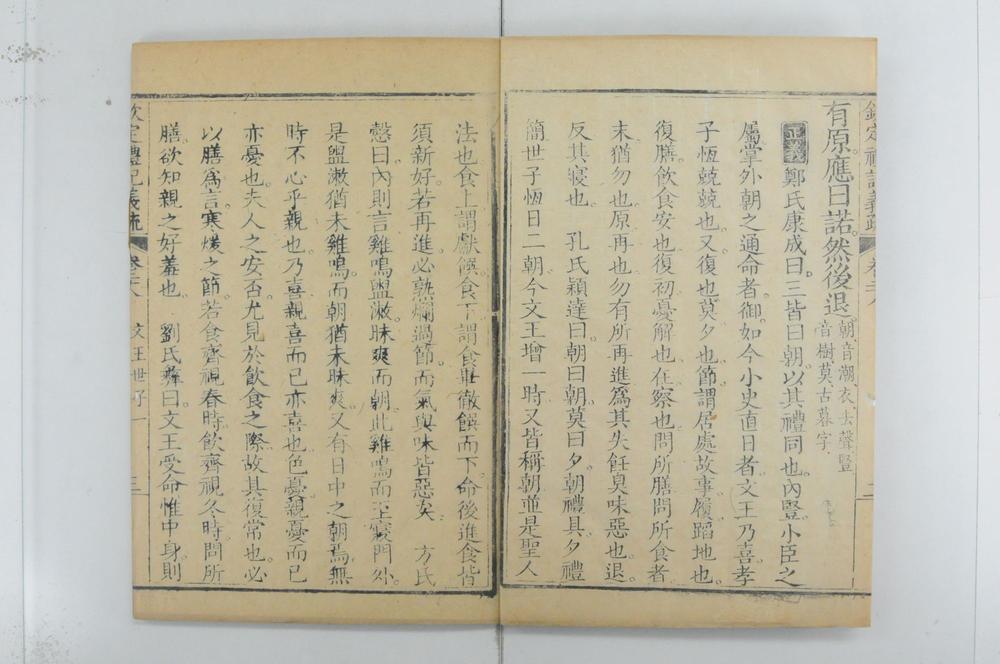 欽定禮記義疏 卷二十八 二
有原應曰諾然後退朝音潮衣去聲豎
音樹莫古暮字
正義鄭氏康成曰三皆曰朝以其禮同也內豎小臣之
屬掌外朝之通命者御如今小史直日者文王乃喜孝
子恆兢兢也又復也莫夕也節謂居處故事履蹈地也
復膳飲食安也復初憂解也在察也問所膳問所食者
末猶勿也原再也勿有所再進為其失飪臭味惡也退
反其寢也 孔氏穎達曰朝曰朝莫曰夕朝禮具夕禮
簡世子恆日二朝今文王增一時又皆稱朝並是聖人
法也食上謂獻饌食下謂食畢徹饌而下命後進食皆
須新好若再進必熟爛過節而氣與味皆惡矣 方氏
慤曰內則言雞鳴盥漱昧爽而朝此雞鳴而至寢門外
是盥漱猶未雞鳴而朝猶未昧爽又有日中之朝焉無
時不心乎親也乃喜親喜而已亦喜也色憂親憂而已
亦憂也夫人之安否尤見於飲食之際故其復常也必
以膳為言寒煖之節若食齊視春時飲齊視冬時問所
膳欲知親之好羞也 劉氏彝曰文王受命惟中身則
欽定禮記義疏 卷二十八 文王世子一 三